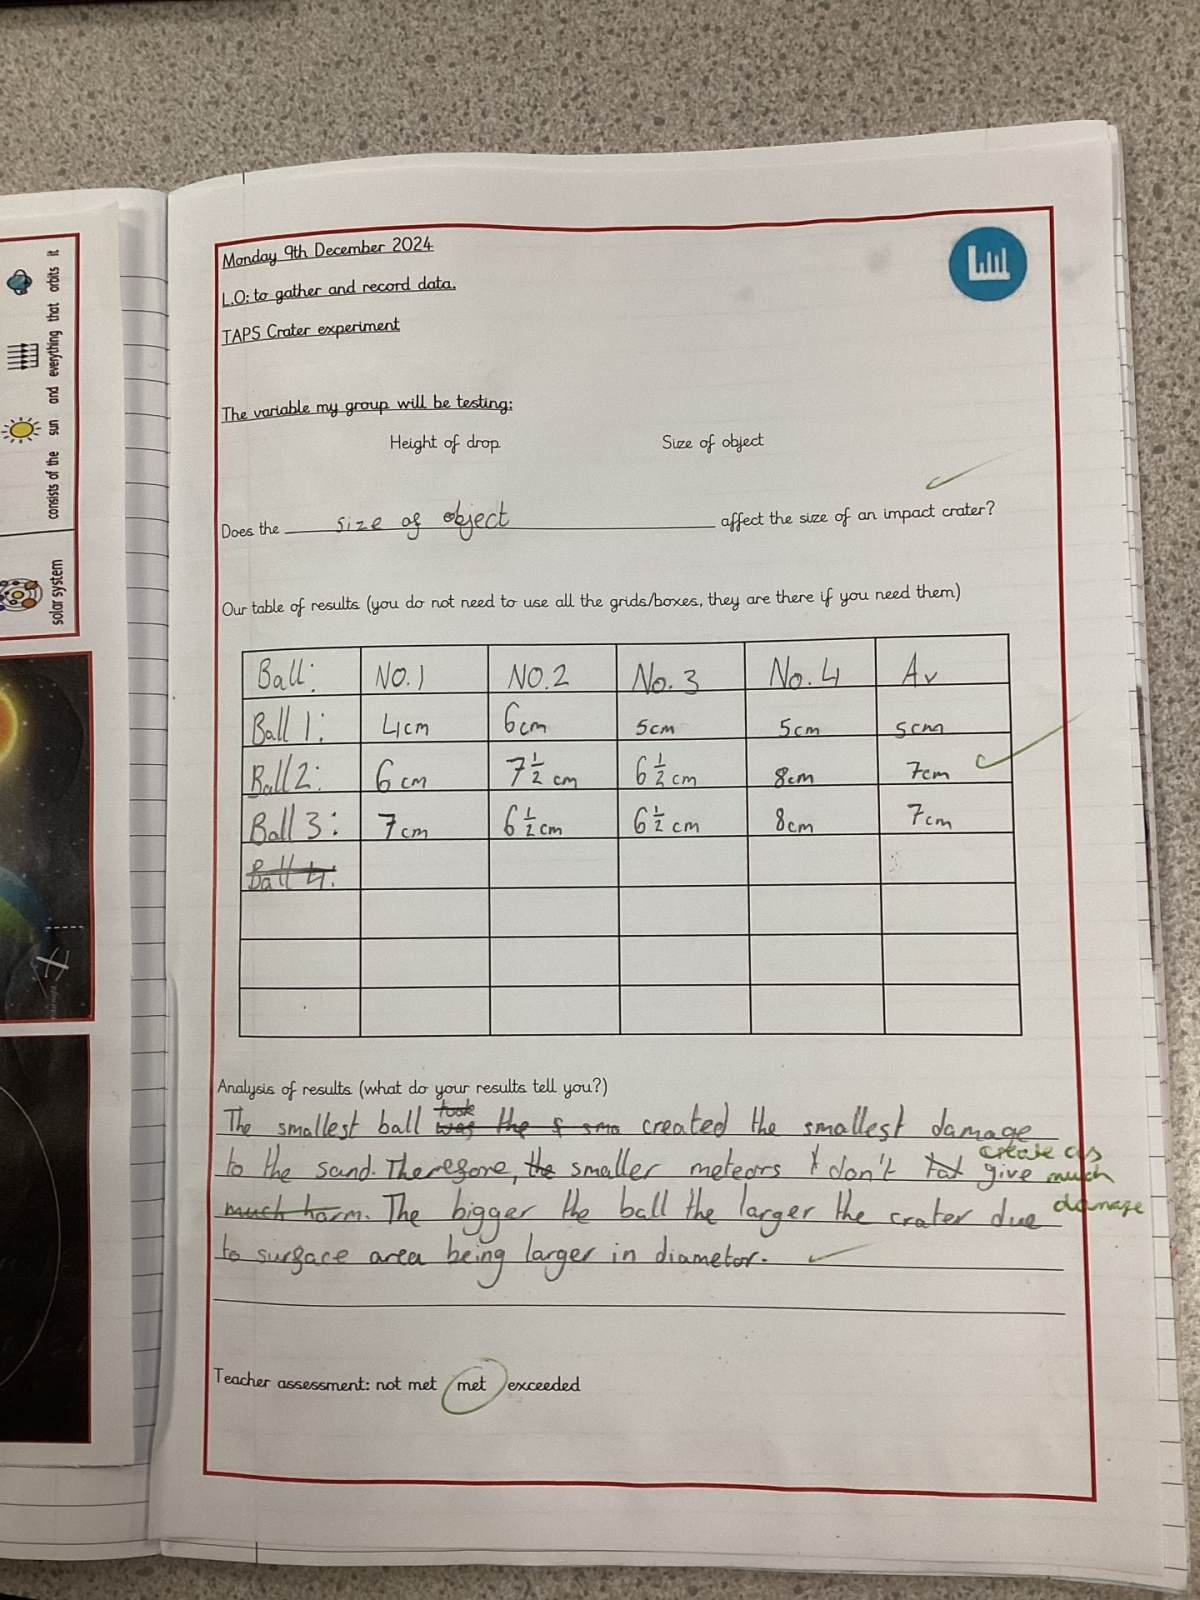 consists of the sun and everything that orbits it
solar system
Monday 9th December 2024
L.O: to gather and record data.
TAPS Crater experiment
The variable my group will be testing:
Height of drop Size of object
Does the size of object affect the size of an impact crater?
Our table of results (you do not need to use all the grids/boxes, they are there if you need them)
Ball: NO.1 NO.2 No.3 No.4 Av
Ball 1: 4cm 6cm 5cm 5cm 5cm
Ball 2: 6cm 7½cm 6½cm 8cm 7cm
Ball 3: 7cm 6½cm 6½cm 8cm 7cm
Ball 4:
Analysis of results (what do your results tell you?)
took
The smallest ball was the s sma created the smallest damage
create as
to the sand. Therefore, the smaller meteors don't give much
much harm. The bigger the ball the larger the crater due damage
to surface area being larger in diametor.
Teacher assessment: not met met exceeded